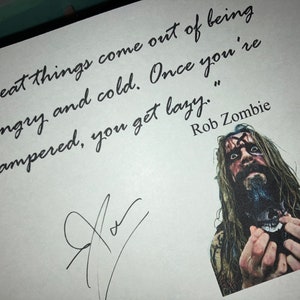 eat things come out of being
ngry and cold. Once you're
ampered, you get lazy."
Rob Zombie